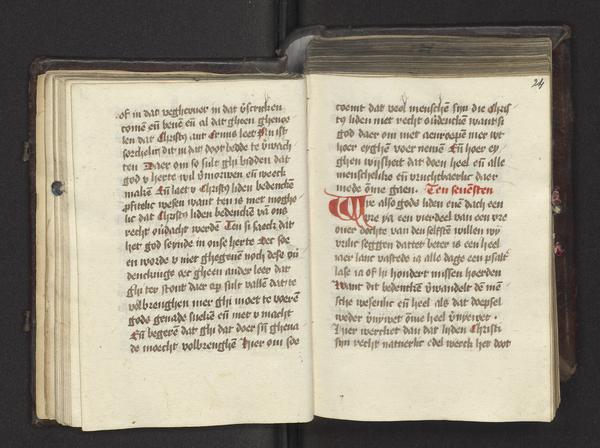 of in dat veghevuer in dat ῡstricken
comē eñ benē eñ al dat gheen ghenoe
len dat Christꝰ ant Cruus leet Nu ist
sorchelic dit in dat doot bedde te ῡwach
ten Daer om so sult ghi bidden dat
god v herte wil ῡmorwen eñ weeck
makē Eñ laet v Christꝰ liden bedenckē
pfitelic wesen want ten is niet moghe
lic dat Christꝰ liden bedenckē vā ons
recht ondacht werdē Ten si saeck dat
het god seynde in onse herte Der soe
en worde v niet ghegeuē noch dese oū
denckinge oer gheen ander leer dat
ghi ter stont daer op sult vallē dat te
volbrenghen mer ghi moet te voerē
gods genade suekē eñ met v macht
Eñ begerē dat ghi dat doer sῡ ghena
de moecht volbrenghē Hier om soe
24
coemt dat veel menschē sijn die Chris
tꝰ liden niet recht oūdenckē want si
god daer om niet aenroepē mer wt
hoer eyghē voer nemē Eñ hoer ey
ghen wijsheit dat doen heel eñ alle
menschelike eñ vruchtbaerlic daer
mede ōme gaen. Ten seuēsten
Wie also gods liden euē dach een
vre ya een vierdeel van een vre
ouer dochte van den seluen willen wy
vrilic seggen dattet beter is een heel
iaer lanc vastede ia alle dage een psalt
lase ia of hi hondert missen hoerden
Want dit bedenckē ῡwandelt dē mē
sche wesenlic eñ heel als dat doepsel
weder ῡnywet ōme heel ῡnyewet.
Hier wercket dan dat liden Christi
sijn recht natuerlic edel werck het doot